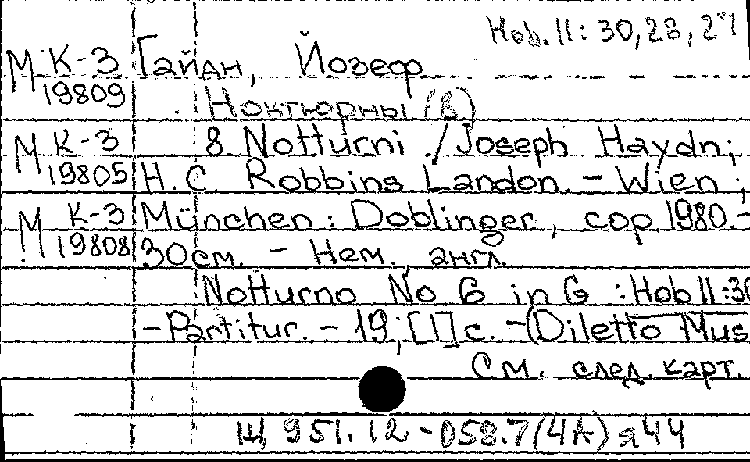 Hob. II: 30, 28, 27
М К-3 Гайдн, Йозеф
19809
Ноктюрны (8)
М К-3 8 Notturni / Joseph Haydn;
19805 H. C Robbins Landon. – Wien;
М К-3 München: Doblinger, cop 1980. –
19808 30 см. – Нем., англ.
Notturno No 6 in G : Hob II:30
– Partitur. – 19, [1] с. – (Diletto Mus
См. след. карт.
Щ 951.12-058.7(4А)я44